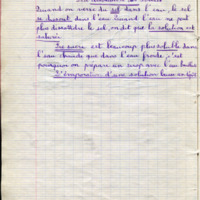 Quand on verse du sel dans l'eau, le sel
se dissout dans l'eau. Quand l'eau ne peut
plus dissoudre le sel, on dit que la solution est
saturée.
Le sucre est beaucoup plus soluble dans
l'eau chaude que dans l'eau froide, c'est
pourquoi on prépare un sirop avec l'eau
L'évaporation d'une solution